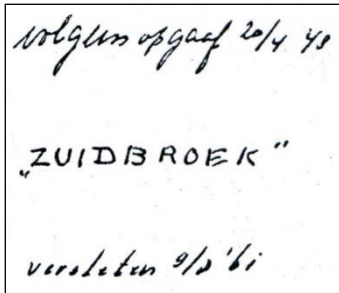 volgens opgaaf 20/4 48
„ZUIDBROEK"
versleten 9/8 '61